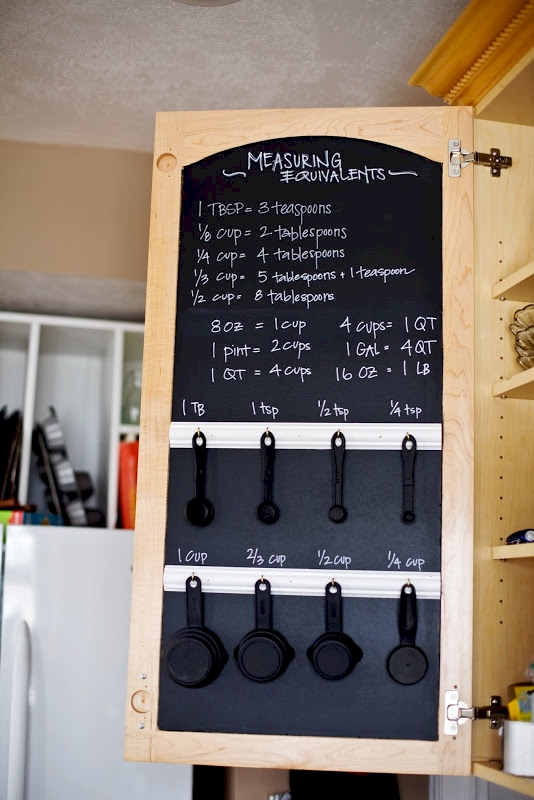 MEASURING
EQUIVALENTS
1 TBSP = 3 teaspoons
1/8 cup = 2 tablespoons
1/4 cup = 4 tablespoons
1/3 cup = 5 tablespoons + 1 teaspoon
1/2 cup = 8 tablespoons
8 oz = 1 cup
1 pint = 2 cups
1 QT = 4 cups
4 cups = 1 QT
1 GAL = 4 QT
16 oz = 1 LB
1 TB 1 tsp 1/2 tsp 1/4 tsp
1 cup 2/3 cup 1/2 cup 1/4 cup